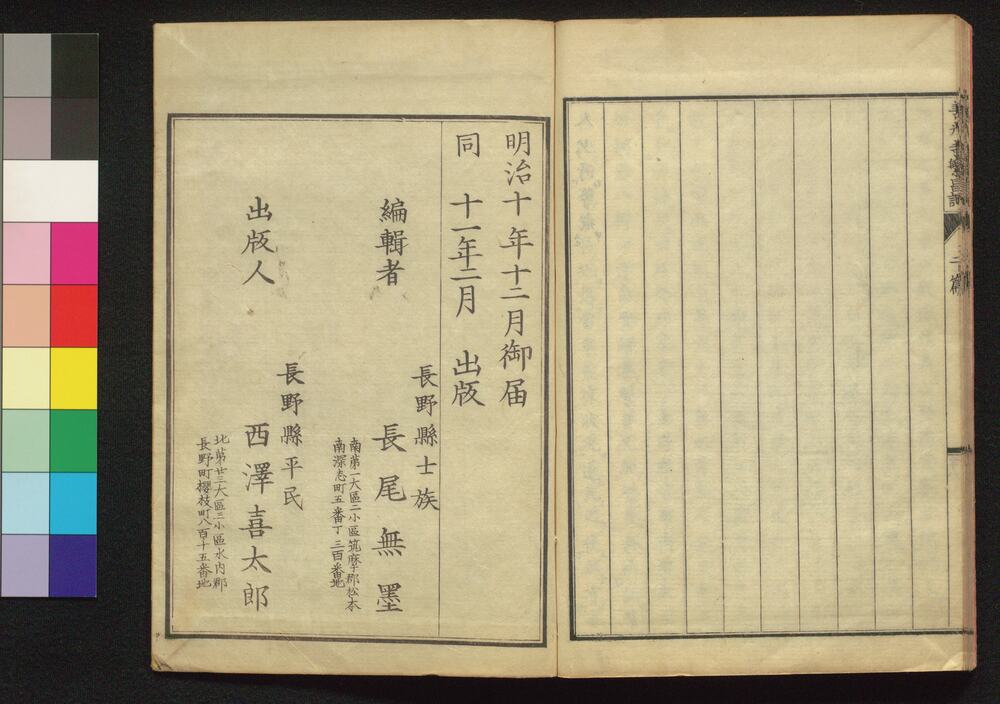 明治十年十二月御届
同 十一年二月 出版
長野縣士族
編輯者 長尾無墨
南第一大區二小區筑摩郡松本
南深志町五番丁三百番地
長野縣平民
出版人 西澤喜太郎
北第廿三大區三小區水内郡
長野町櫻枝町八百十五番地